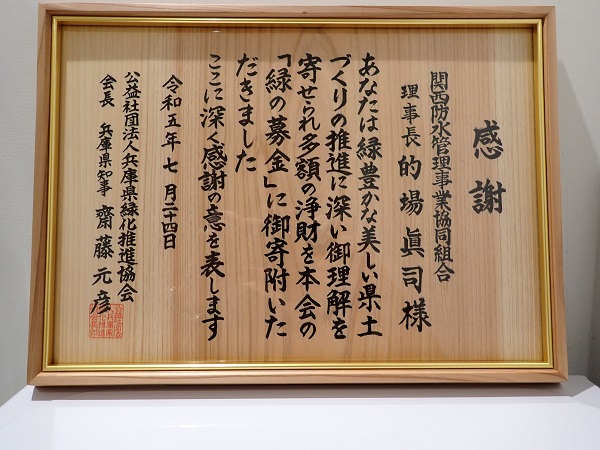 感謝
関西防水管理事業協同組合
理事長 的場眞司様
あなたは緑豊かな美しい県土
づくりの推進に深い御理解を
寄せられ多額の浄財を本会の
「緑の募金」に御寄附いた
だきました
ここに深く感謝の意を表します
令和五年七月二十四日
公益社団法人兵庫県緑化推進協会
会長 兵庫県知事 齋藤元彦